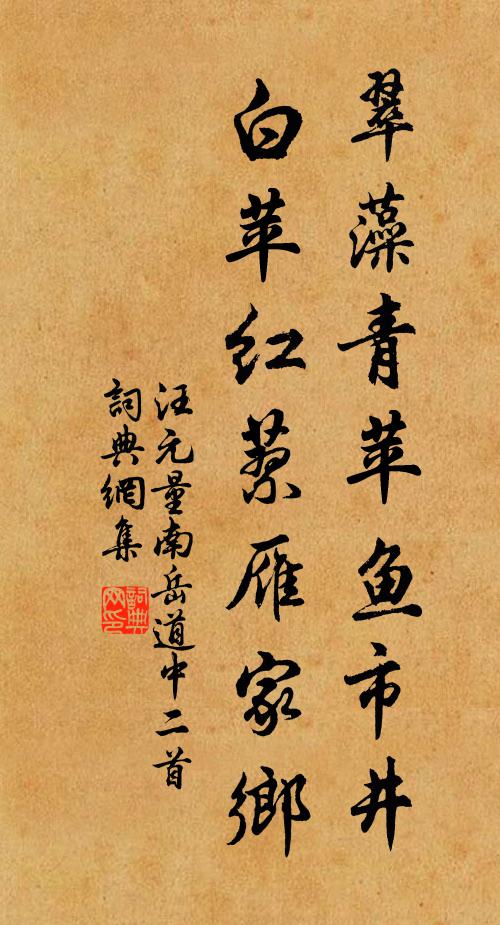 翠藻青苹鱼市井
白苹红蓼雁家鄉
汪元量南岳道中二首
詞典網集
詞典
网印